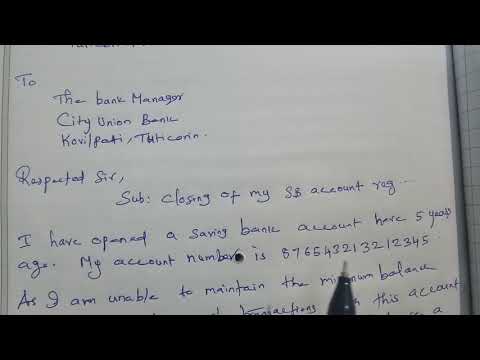 To
The bank Manager
City Union Bank
Kovilpati, Tuticorin.
Respected Sir,
Sub: Closing of my SB account reg...
I have opened a saving bank account here 5 years
ago. My account number is 876543213212345.
As I am unable to maintain the minimum balance
transactions this account
a